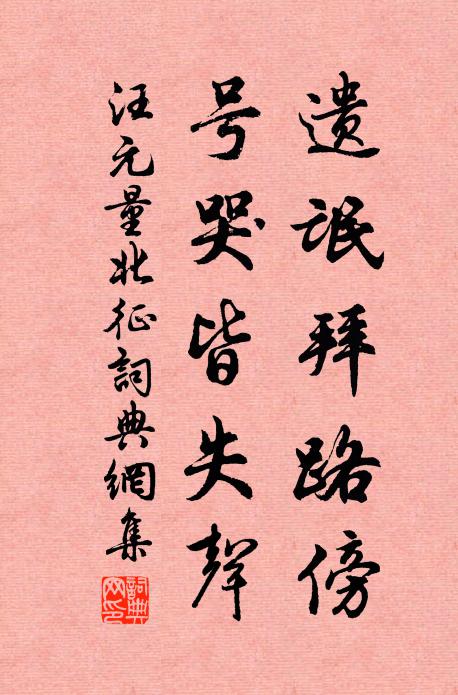 遗氓拜路傍
号哭皆失聲
汪元量北征詞典網集
詞典网印